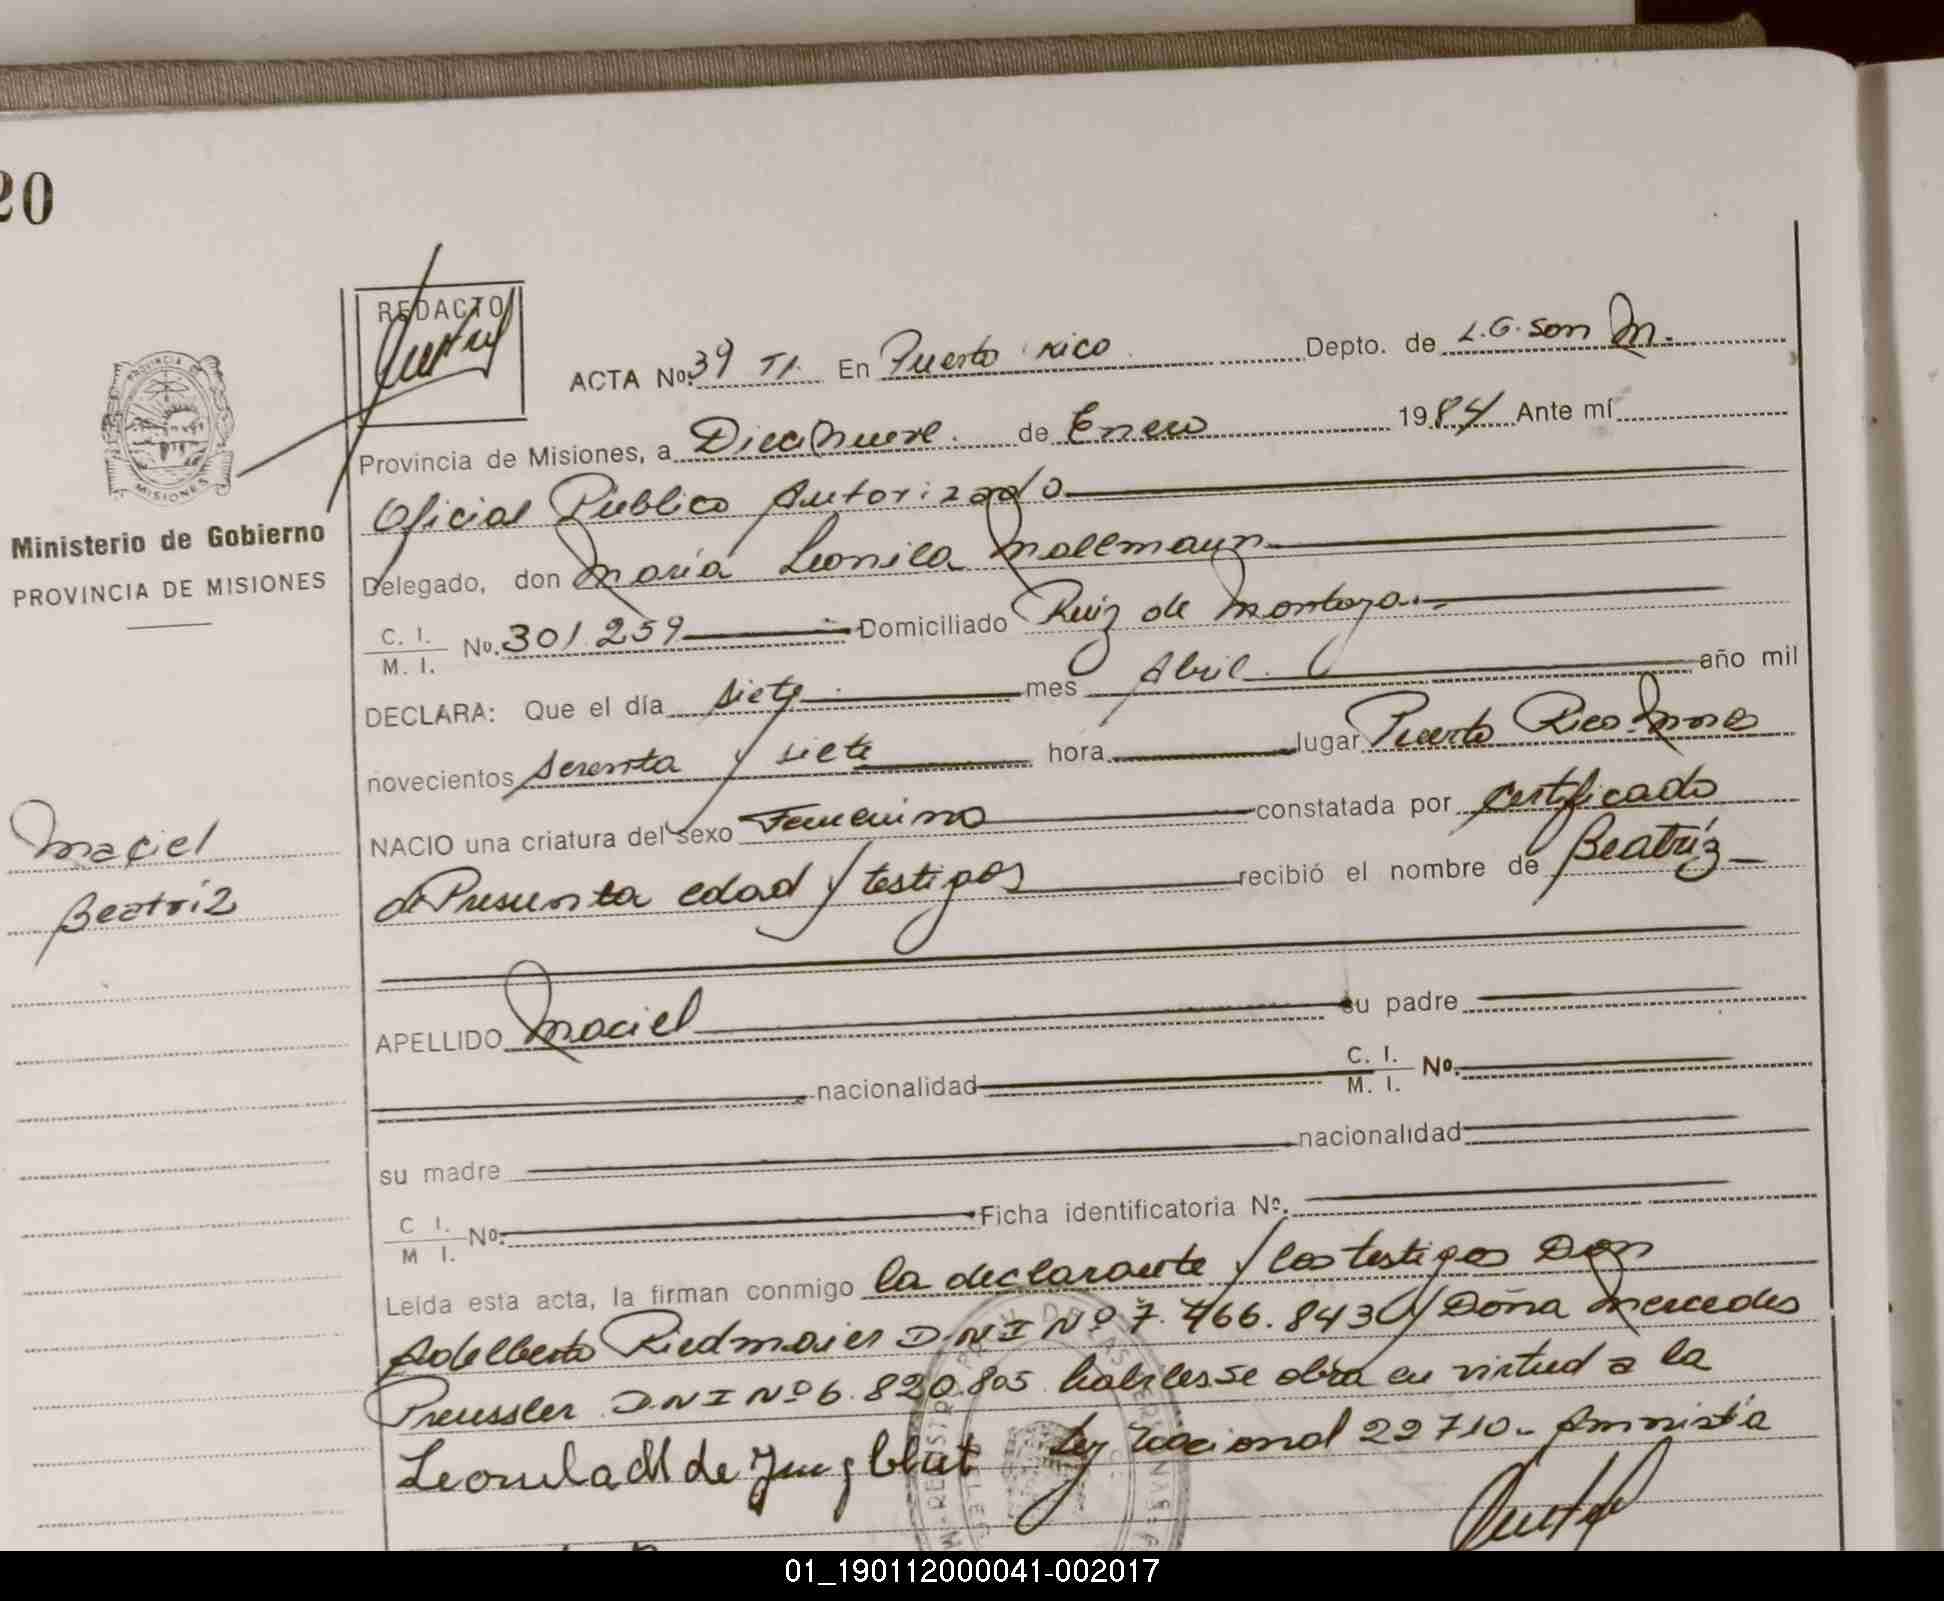 20
REDACTO
ACTA No. 39 TI. En Puerto rico Depto. de L.G. San M.
Provincia de Misiones, a Diecinueve. de Enero 1984 Ante mí
Oficial Público Autorizado
Delegado, don María Leonila Mallmann
C. I. M. I. No. 301.259 Domiciliado Ruiz de Montoya.
DECLARA: Que el día siete mes Abril año mil
novecientos setenta y siete hora lugar Puerto Rico Mnes
NACIO una criatura del sexo Femenino constatada por certificado
de Presunta edad y testigos recibió el nombre de Beatríz
APELLIDO Maciel su padre
nacionalidad C. I. M. I. No.
su madre nacionalidad
C I. M I. No. Ficha identificatoria Nº.
Leída esta acta, la firman conmigo la declarante y los testigos Don
Adelberto Riedmaier D.N.I Nº 7.466.843 y Doña Mercedes
Preussler D.N.I Nº 6.820.805 habiles. Se obra en virtud a la
Ley Nacional 22710.- Amnistía
Leonila M de Jungblut
PROVINCIA DE
MISIONES
Ministerio de Gobierno
PROVINCIA DE MISIONES
Maciel
Beatríz
01_190112000041-002017